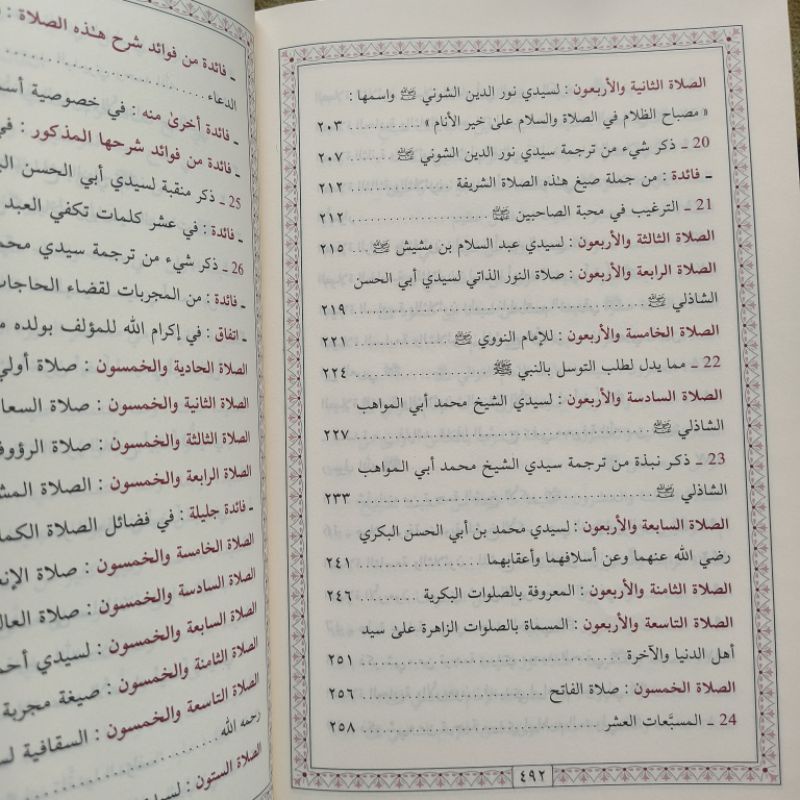 الصلاة الثانية والأربعون : لسيدي نور الدين الشوني ﷺ واسمها :
« مصباح الظلام في الصلاة والسلام علىٰ خير الأنام » ٢٠٣
20 ـ ذكر شيء من ترجمة سيدي نور الدين الشوني ٢٠٧
ـ فائدة : من جملة صيغ هـٰذه الصلاة الشريفة ٢١٢
21 ـ الترغيب في محبة الصاحبين ٢١٢
الصلاة الثالثة والأربعون : لسيدي عبد السلام بن مشيش ٢١٥
الصلاة الرابعة والأربعون : صلاة النور الذاتي لسيدي أبي الحسن
الشاذلي ٢١٩
الصلاة الخامسة والأربعون : للإمام النووي ٢٢١
22 ـ مما يدل لطلب التوسل بالنبي ﷺ ٢٢٤
الصلاة السادسة والأربعون : لسيدي الشيخ محمد أبي المواهب
الشاذلي ٢٢٧
23 ـ ذكر نبذة من ترجمة سيدي الشيخ محمد أبي المواهب
الشاذلي ٢٣٣
الصلاة السابعة والأربعون : لسيدي محمد بن أبي الحسن البكري
رضي الله عنهما وعن أسلافهما وأعقابهما ٢٤١
الصلاة الثامنة والأربعون : المعروفة بالصلوات البكرية ٢٤٦
الصلاة التاسعة والأربعون : المسماة بالصلوات الزاهرة علىٰ سيد
أهل الدنيا والآخرة ٢٥١
الصلاة الخمسون : صلاة الفاتح ٢٥٦
24 ـ المسبَّعات العشر ٢٥٨
٤٩٢
ـ فائدة من فوائد شرح هـٰذه الصلاة :
الدعاء
ـ فائدة أخرىٰ منه : في خصوصية
ـ فائدة من فوائد شرحها المذكور : في
25 ـ ذكر منقبة لسيدي أبي الحسن
ـ فائدة : في عشر كلمات تكفي العبد
26 ـ ذكر شيء من ترجمة سيدي
ـ فائدة : من المجربات لقضاء الحاجات
ـ اتفاق : في إكرام الله للمؤلف بولده
الصلاة الحادية والخمسون : صلاة أولي
الصلاة الثانية والخمسون : صلاة
الصلاة الثالثة والخمسون : صلاة
الصلاة الرابعة والخمسون : الصلاة
ـ فائدة جليلة : في فضائل الصلاة
الصلاة الخامسة والخمسون : صلاة
الصلاة السادسة والخمسون : صلاة
الصلاة السابعة والخمسون : لسيدي
الصلاة الثامنة والخمسون : صيغة مجربة
الصلاة التاسعة والخمسون : السقافية
رحمه الله
الصلاة الستون :